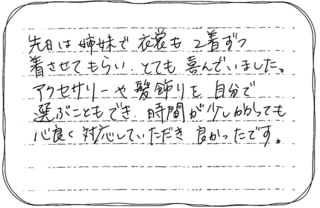 先日は姉妹で衣裳も2着ずつ
着させてもらい、とても喜んでいました。
アクセサリーや髪飾りを自分で
選ぶこともでき、時間が少しかかっても
心良く対応していただき良かったです。